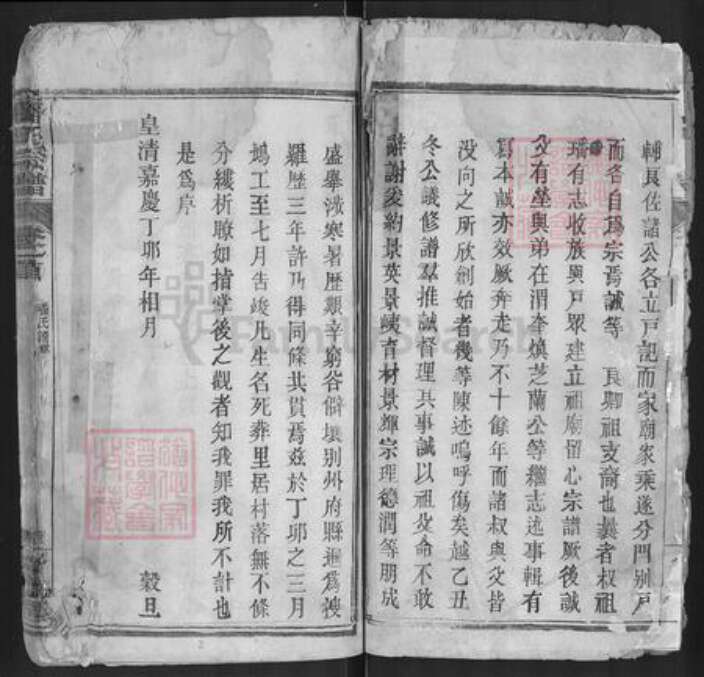 輔良佐諸公各立戶記而家廟家乘遂分門別戶
而各自為宗焉誠等 良卿祖支裔也曩者叔祖
璠有志收族與戶眾建立祖廟留心宗譜厥後誠
父有瑩與弟在渭奎煥芝蘭公等繼志述事輯有
寫本誠亦效厥奔走乃不十餘年而諸叔與父皆
沒向之所欣創始者幾等陳述嗚呼傷矣越乙丑
冬公議修譜羣推誠督理其事誠以祖父命不敢
辭謝爰約景英景峽育材景輝宗理德潤等朋成
盛舉涉寒暑歷艱辛窮谷僻壤別州府縣遍為搜
羅歷三年許乃得同條共貫焉茲於丁卯之三月
鳩工至七月告竣凡生名死葬里居村落無不條
分縷析瞭如指掌後之觀者知我罪我所不計也
是為序
皇清嘉慶丁卯年相月 穀旦
氏宗譜
卷之一首
FamilySearch